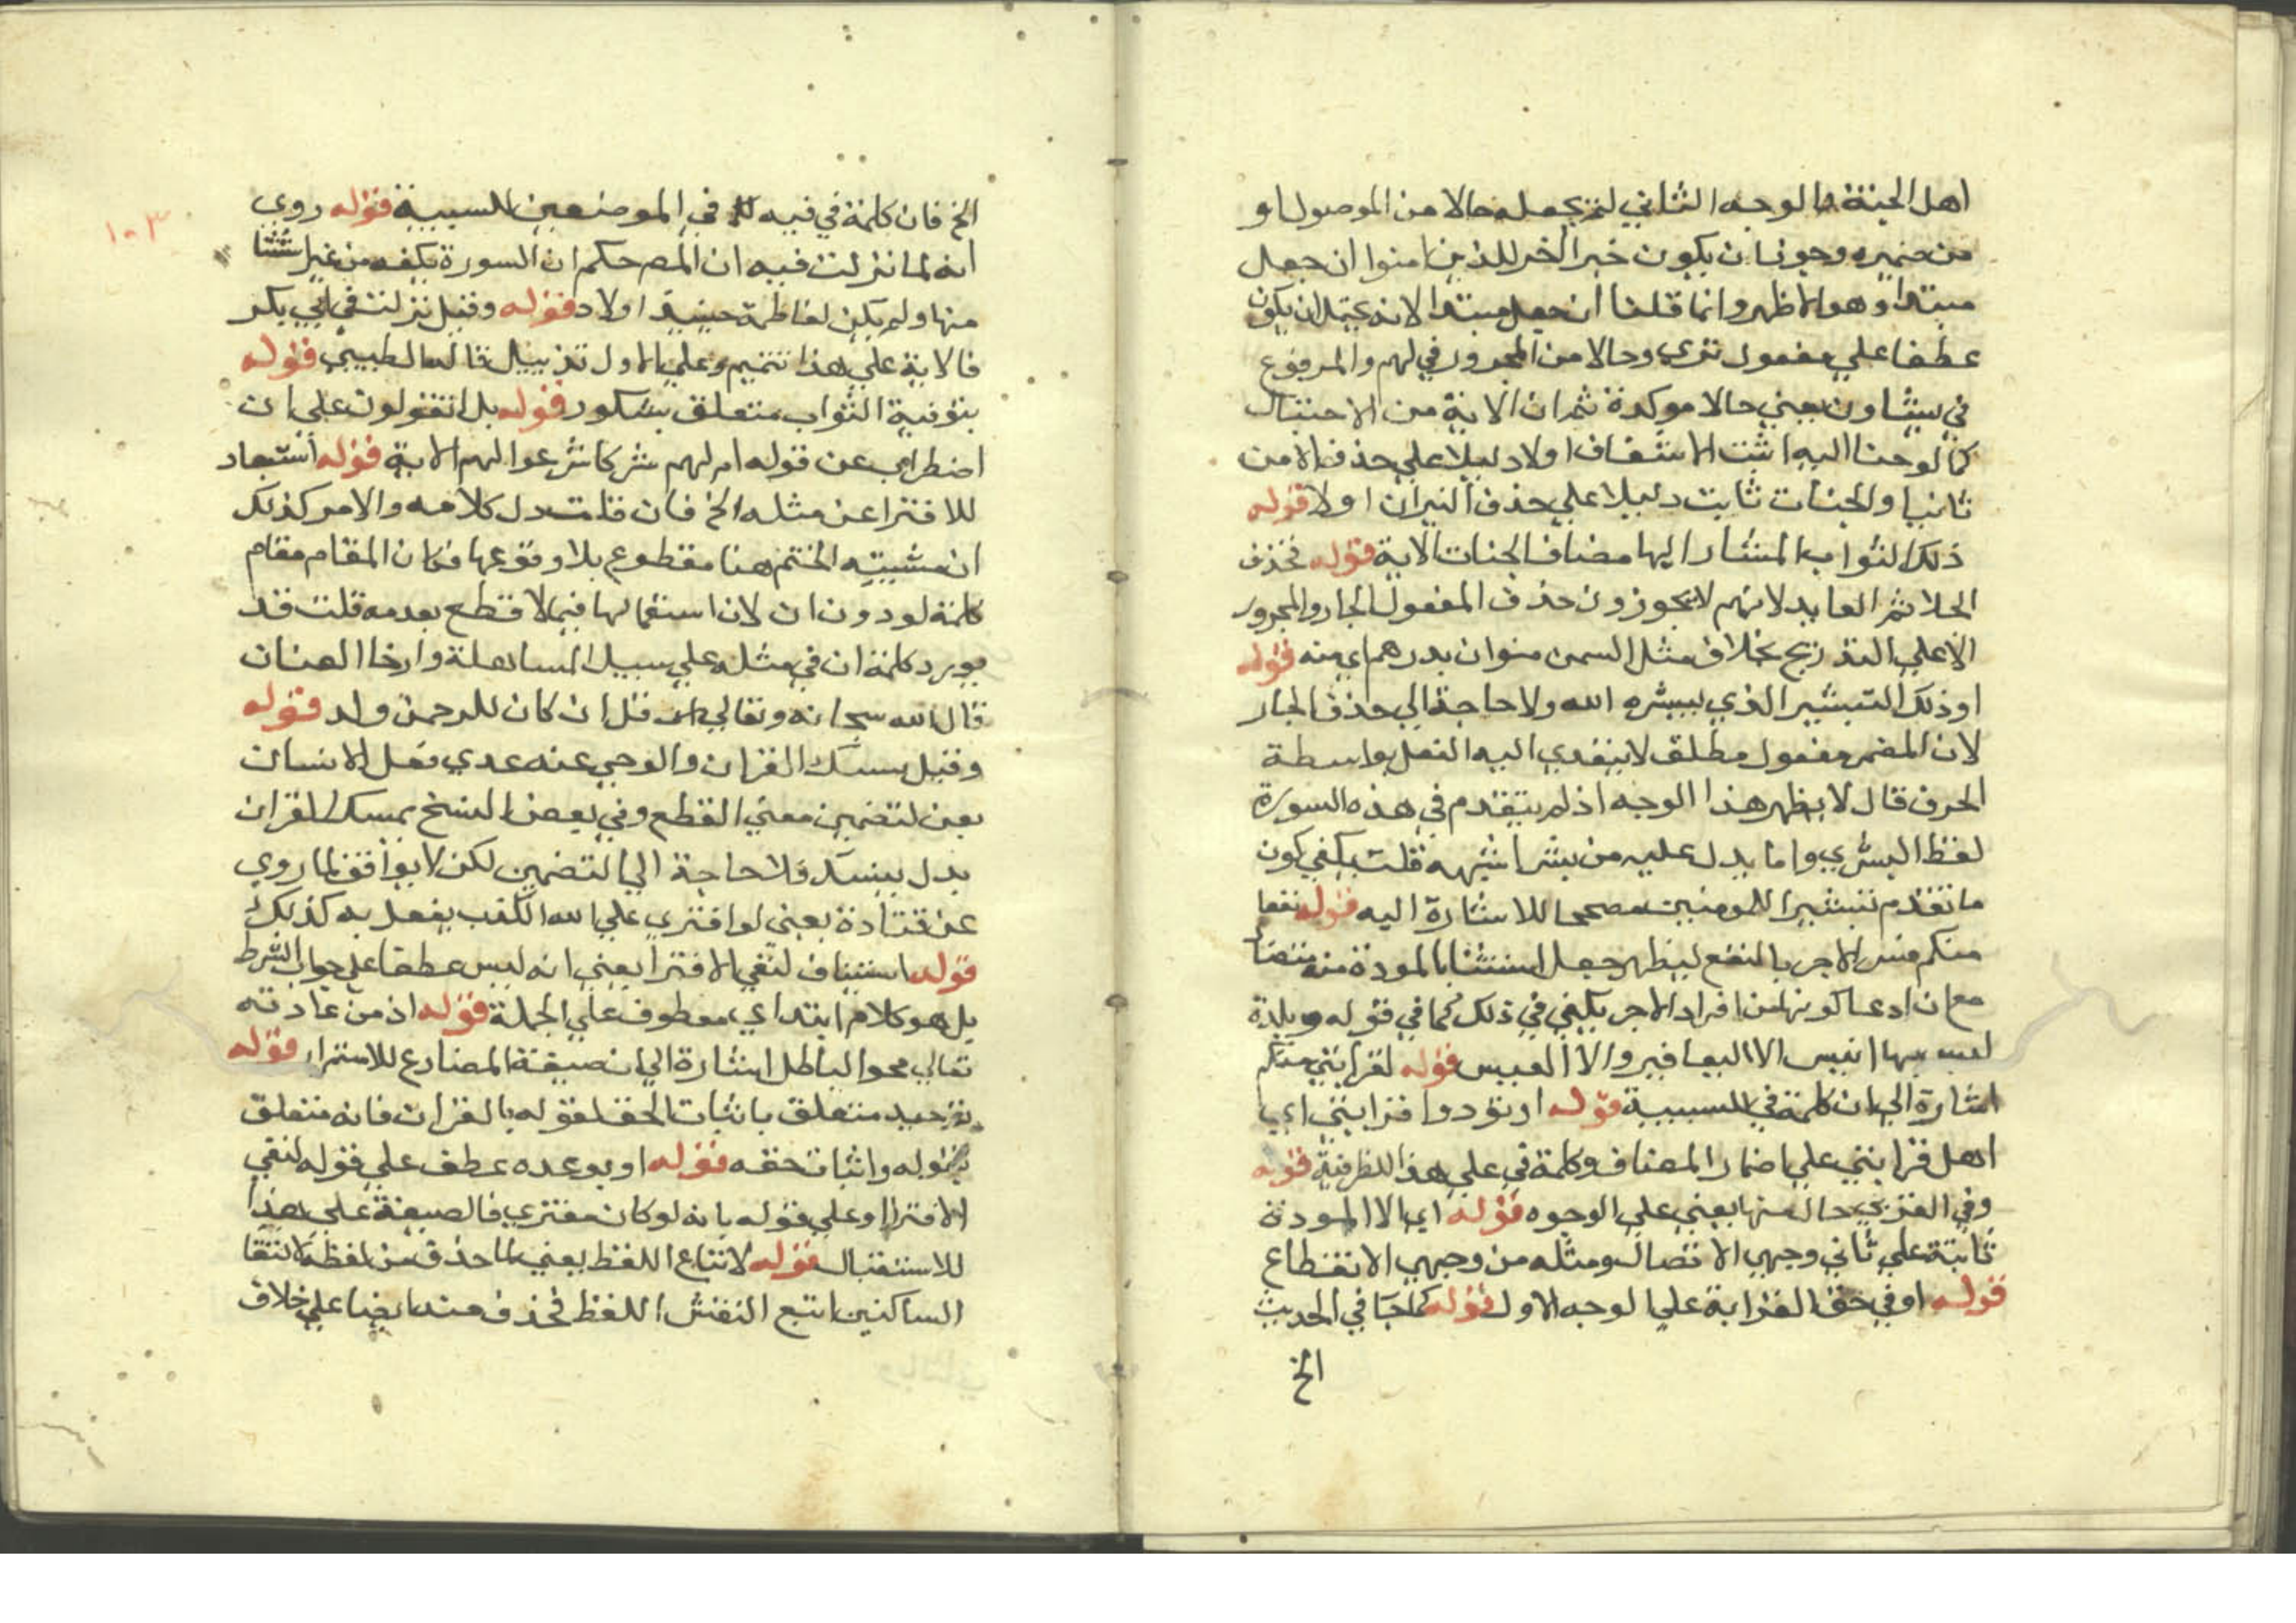 اهل الجنة فالوجه الثاني لنزيجعله حالا من الموصول او
من ضميره وجوز ان يكون خبر الخر للذين امنوا ان جعل
مبتدا وهو الاظهر وانما قلنا ان جعل مبتدا لانه يحتمل ان يكون
عطفا علي مفعول تري وحالا من المجرور في لهم والمرفوع
في يشاون بعني حالا موكدة ثم ان الاية من الاحتباك
كما لوحنا اليه اثبت الاشفاق اولا دليلا علي حذف الامن
ثانيا والجنات ثابت دليلا علي حذف النيران اولا قوله
ذلك الثواب المشار اليها مضاف الجنات الاية قوله فحذف
الحلا ثم العايد لانهم لا يجوزون حذف المفعول الجار والمجرور
الا علي التدريج بخلاف مثل السمن منوان بدرهم اي منه قوله
او ذلك التبشير الذي يبشره الله ولا حاجة الي حذف الجار
لان المضمر مفعول مطلق لا يتعدي اليه الفعل بواسطة
الحرف قال لا يظهر هذا الوجه اذ لم يتقدم في هذه السورة
لفظ البشري واما يدل عليه من بشر اشبهه قلت يكفي كون
ما تقدم تبشيرا للمومنين مصححا للاشارة اليه قوله نفعا
منكم فسر الاجر بالنفع ليظهر جعل استثنا المودة منه متصلا
مع ان ادعا كونها من افراد الاجر يكفي في ذلك كما في قوله وبلدة
ليس بها انيس الا اليعافير والا العيس قوله لقرابتي منكم
اشارة الي ان كلمة في للسببية قوله او تودوا قرابتي اي
اهل قرابتي علي اضمار المضاف وكلمة في علي هذا للظرفية قوله
وفي القربي حال منها يعني علي الوجوه قوله اي الا المودة
ثابتة علي ثاني وجهي الاتصال ومثله من وجهي الانقطاع
قوله او في حق القرابة علي الوجه الاول قوله كما جا في الحديث
الخ
الخ فان كلمة في فيه في الموضعين للسببية قوله روي
انه لما نزلت فيه ان المص حكم ان السورة مكيه من غير استثنا
منها ولم يكن لفاطمة حينيذ اولاد قوله وقيل نزلت في ابي بكر
فالاية علي هذا تتميم وعلي الاول تذييل قاله الطيبي قوله
بتوفية الثواب متعلق بشكور قوله بل ايقولون علي ان
اضطراب عن قوله ام لهم شركا شرعوا لهم الاية قوله استبعاد
للافترا عن مثله الخ فان قلت دل كلامه والامر كذلك
ان مشيته الختم هنا مقطوع بلا وقوعها فكان المقام مقام
كلمة لو دون ان لان استعمالها فيما لا قطع بعدمه قلت قد
يورد كلمة ان في مثله علي سبيل المساهلة وارخا العنان
قال الله سبحانه وتعالي قل ان كان للرحمن ولد قوله
وقيل يمسك القران والوحي عنه عدي فعل الانسان
بعن لتضمين معني القطع وفي بعض النسخ يمسك القران
بدل ينسك فلا حاجة الي التضمين لكن لا يوافق لما روي
عن قتادة يعني لو افتري علي الله الكذب يفعل به كذلك
قوله استيناف لنفي الافترا يعني انه ليس عطفا علي جواب الشرط
بل هو كلام ابتداي معطوف علي الجملة قوله اذ من عادته
تعالي محو الباطل اشارة الي ان صيغة المضارع للاستمرار قوله
بوحيه متعلق باثبات الحق لقوله بالقران فانه متعلق
بقوله واثبات حقه قوله او بوعده عطف علي قوله لنفي
الافترا او علي قوله بانه لو كان مفتري فالصيغة علي هذا
للاستقبال قوله لاتباع اللفظ يعني لما حذف من لفظه لالتقا
الساكنين اتبع النقش اللفظ فحذف منه ايضا علي خلاف
١٠٣